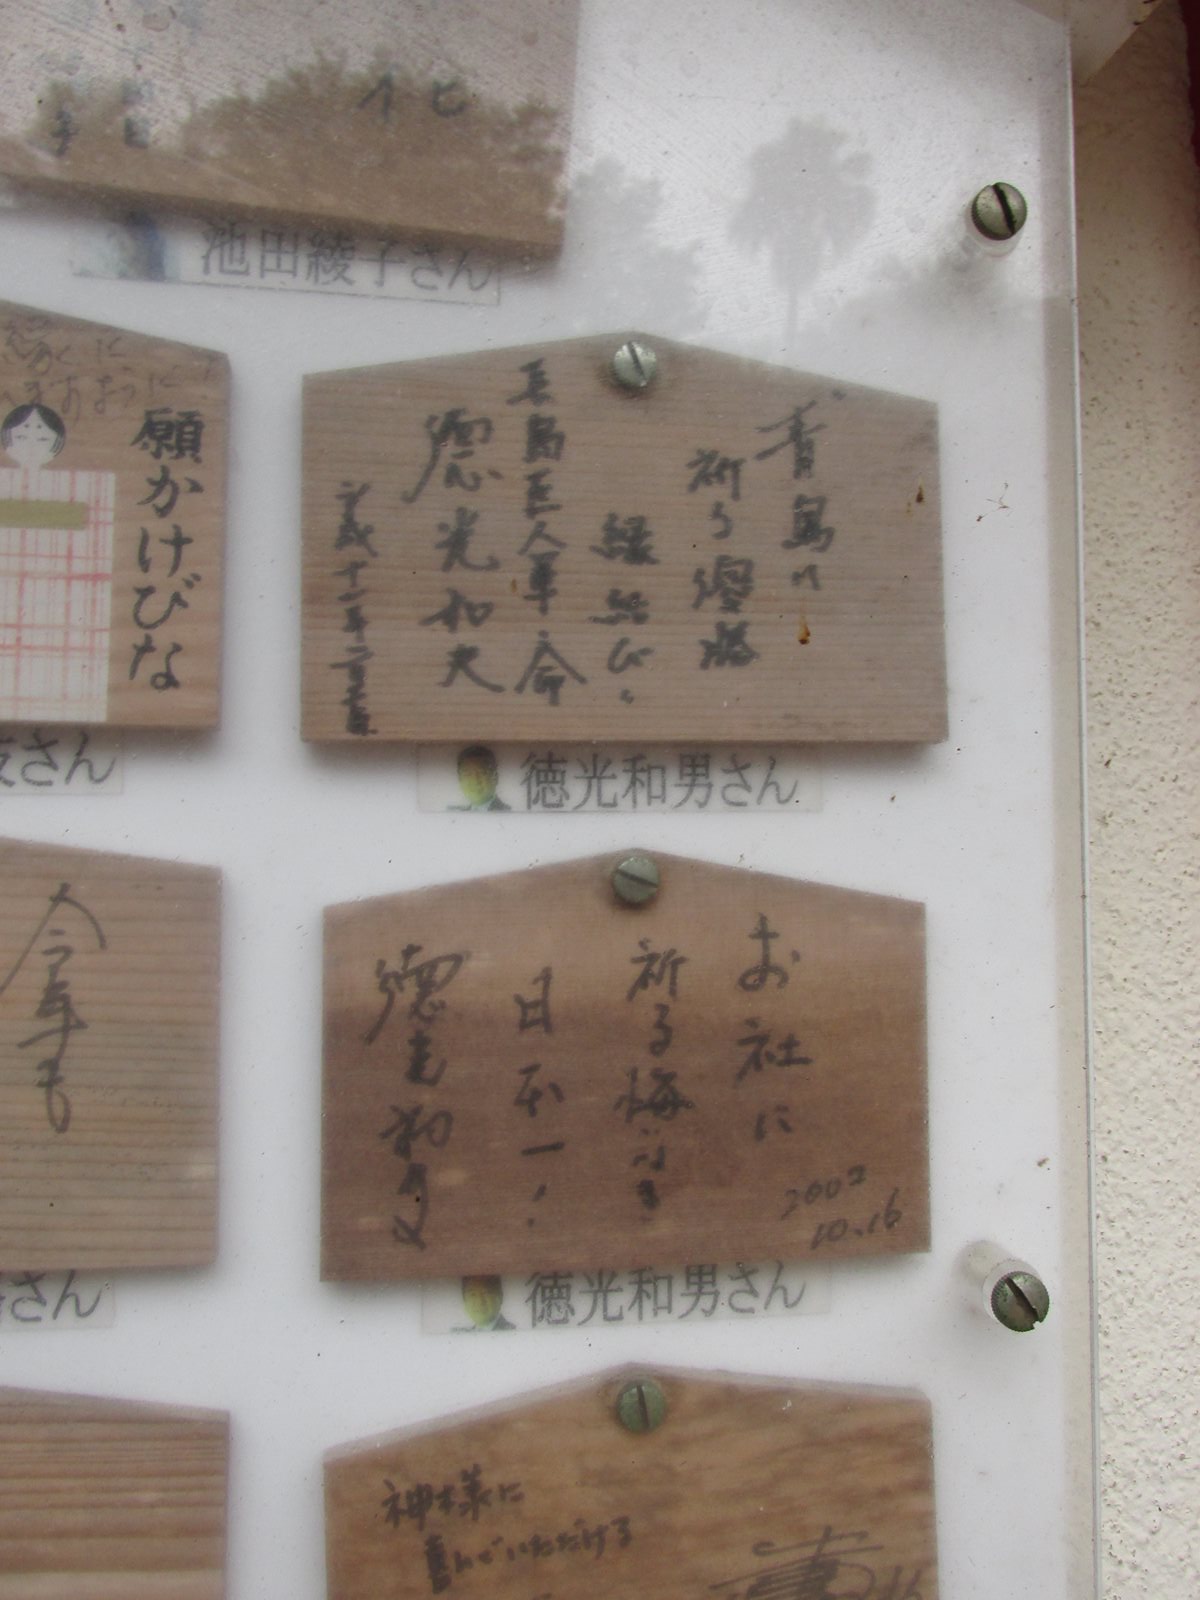 池田綾子さん
願かけびな
青島に
祈る優勝
縁結び
長島巨人軍命
徳光和夫
徳光和男さん
お社に
祈る
日本一!
2002
10.16
徳光和夫
徳光和男さん
今年も
さん
さん
神様に
喜んでいただける